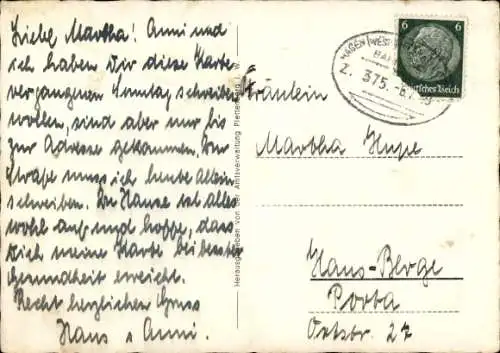 Liebe Martha! Anni und
ich haben Dir diese Karte
vergangenen Sonntag schreiben
wollen, sind aber nur bis
zur Adresse gekommen. Zur
Strafe muss ich heute allein
schreiben. Zu Hause ist alles
wohl auf und hoffe, dass
Dich meine Karte bei bester
Gesundheit erreicht.
Recht herzlichen Gruss
Hans u Anni.
Herausgegeben von der Amtsverwaltung
HAGEN (WESTF
Z. 375
6
6
Deutsches Reich
Fräulein
Martha Hupe
Haus-Berge
Porta
Ortsstr. 27